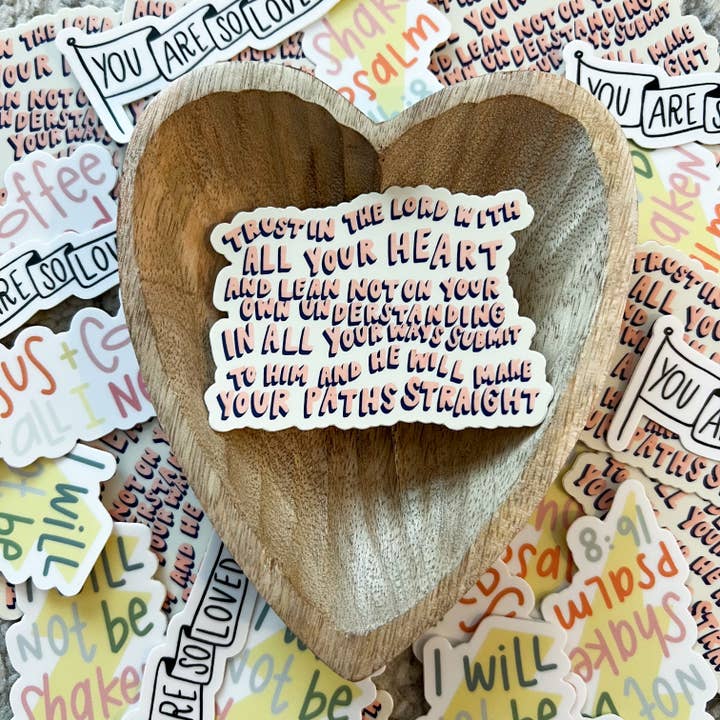 TRUST IN THE LORD WITH
ALL YOUR HEART
AND LEAN NOT ON YOUR
OWN UNDERSTANDING
IN ALL YOUR WAYS SUBMIT
TO HIM AND HE WILL MAKE
YOUR PATHS STRAIGHT
YOU ARE SO LOVED
IN THE LORD
YOUR
LEAN NOT
shake
psalm
AND LEAN NOT ON YOUR
OWN UNDERSTANDING
YOUR WAYS SUBMIT
MAKE
STRAIGHT
YOU ARE SO
Coffee
ARE SO LOVED
all I
I will
not be
WILL
not be
shaken
ARE SO LOVED
not be
I will
not be
psalm
16:8
psalm
shaken
not
YOU ARE
TRUST IN THE
ALL YOU
shaken